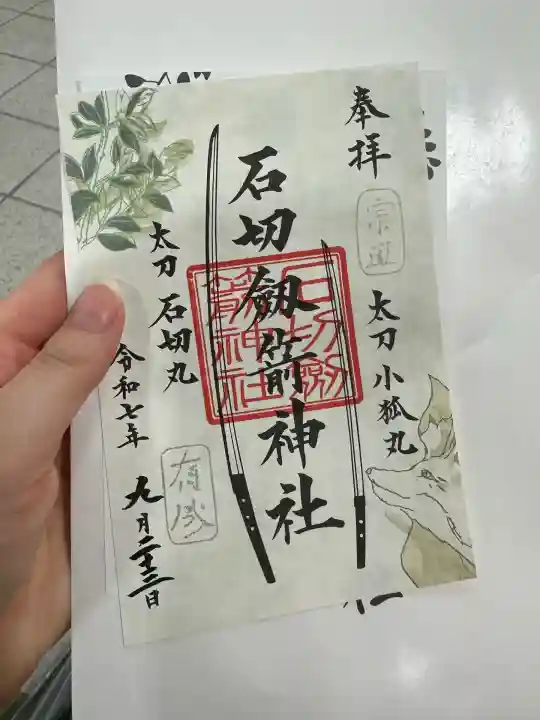 奉拝
宗近
太刀 小狐丸
石切劔箭神社
石切劔箭神社
太刀 石切丸
有成
令和七年
九月二十三日